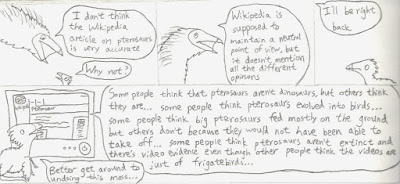 I don't think
the Wikipedia
article on pterosaurs
is very accurate
Why not?
Wikipedia is
supposed to
maintain a neutral
point of view, but
it doesn't mention
all the different
opinions
I'll be right
back
Pterosaur
Some people think that pterosaurs aren't dinosaurs, but others think
they are... some people think pterosaurs evolved into birds...
some people think big pterosaurs fed mostly on the ground
but others don't because they would not have been able to
take off... some people think pterosaurs aren't extinct and
there's video evidence even though other people think the videos are
just of frigatebirds...
Better get around to
undoing this mess...